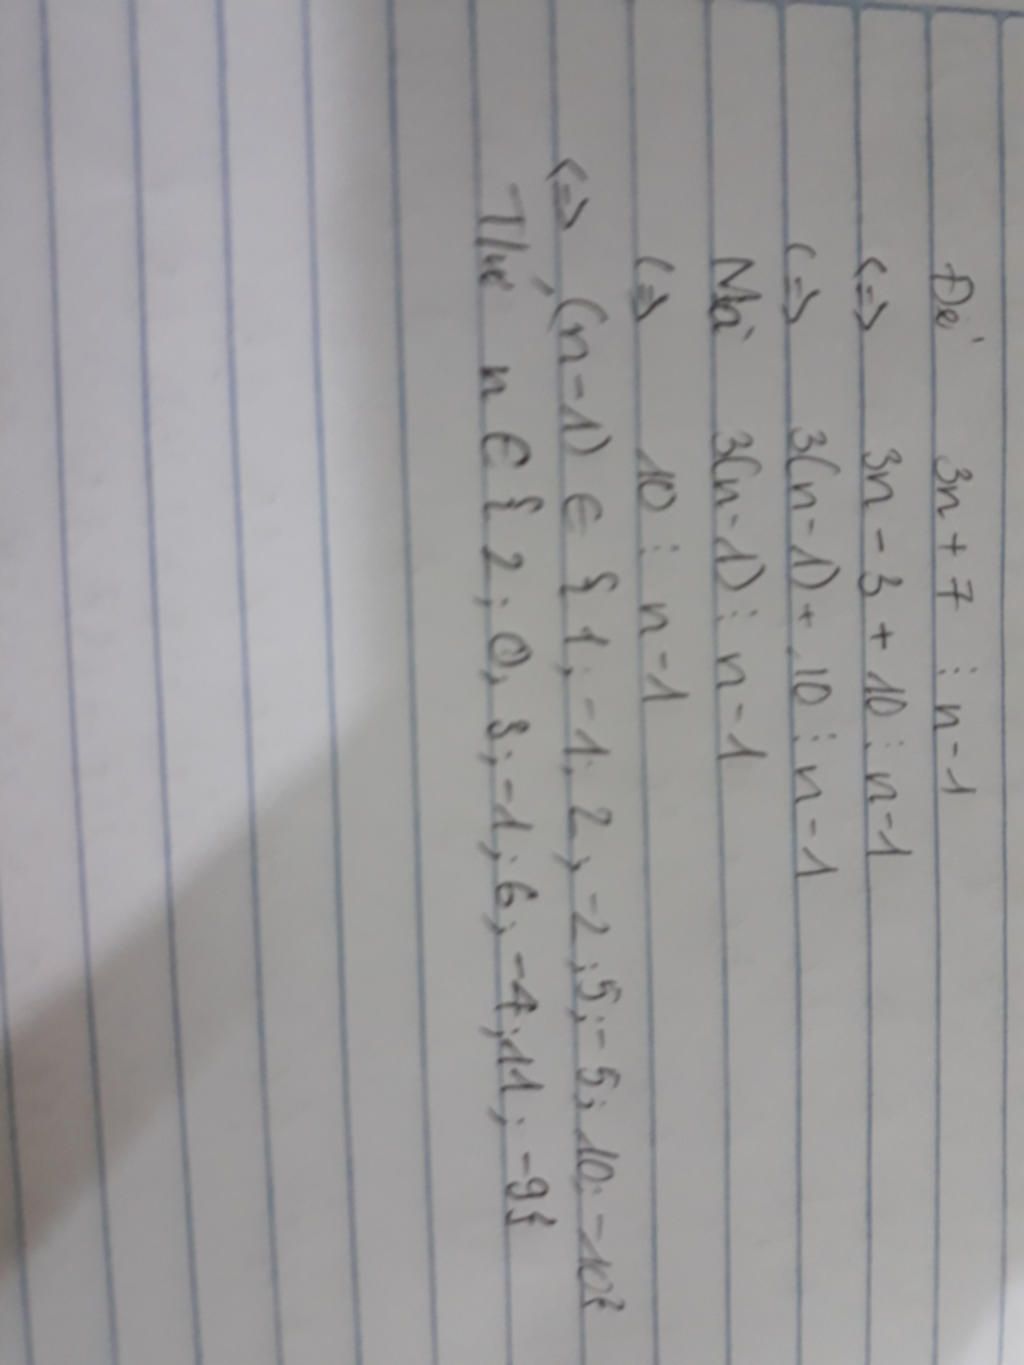 Để 3n + 7 ⋮ n - 1
<=> 3n - 3 + 10 ⋮ n - 1
<=> 3(n - 1) + 10 ⋮ n - 1
Mà 3(n - 1) ⋮ n - 1
<=> 10 ⋮ n - 1
<=> (n - 1) ∈ { 1; -1; 2; -2; 5; -5; 10; -10}
Thế n ∈ { 2; 0; 3; -1; 6; -4; 11; -9}